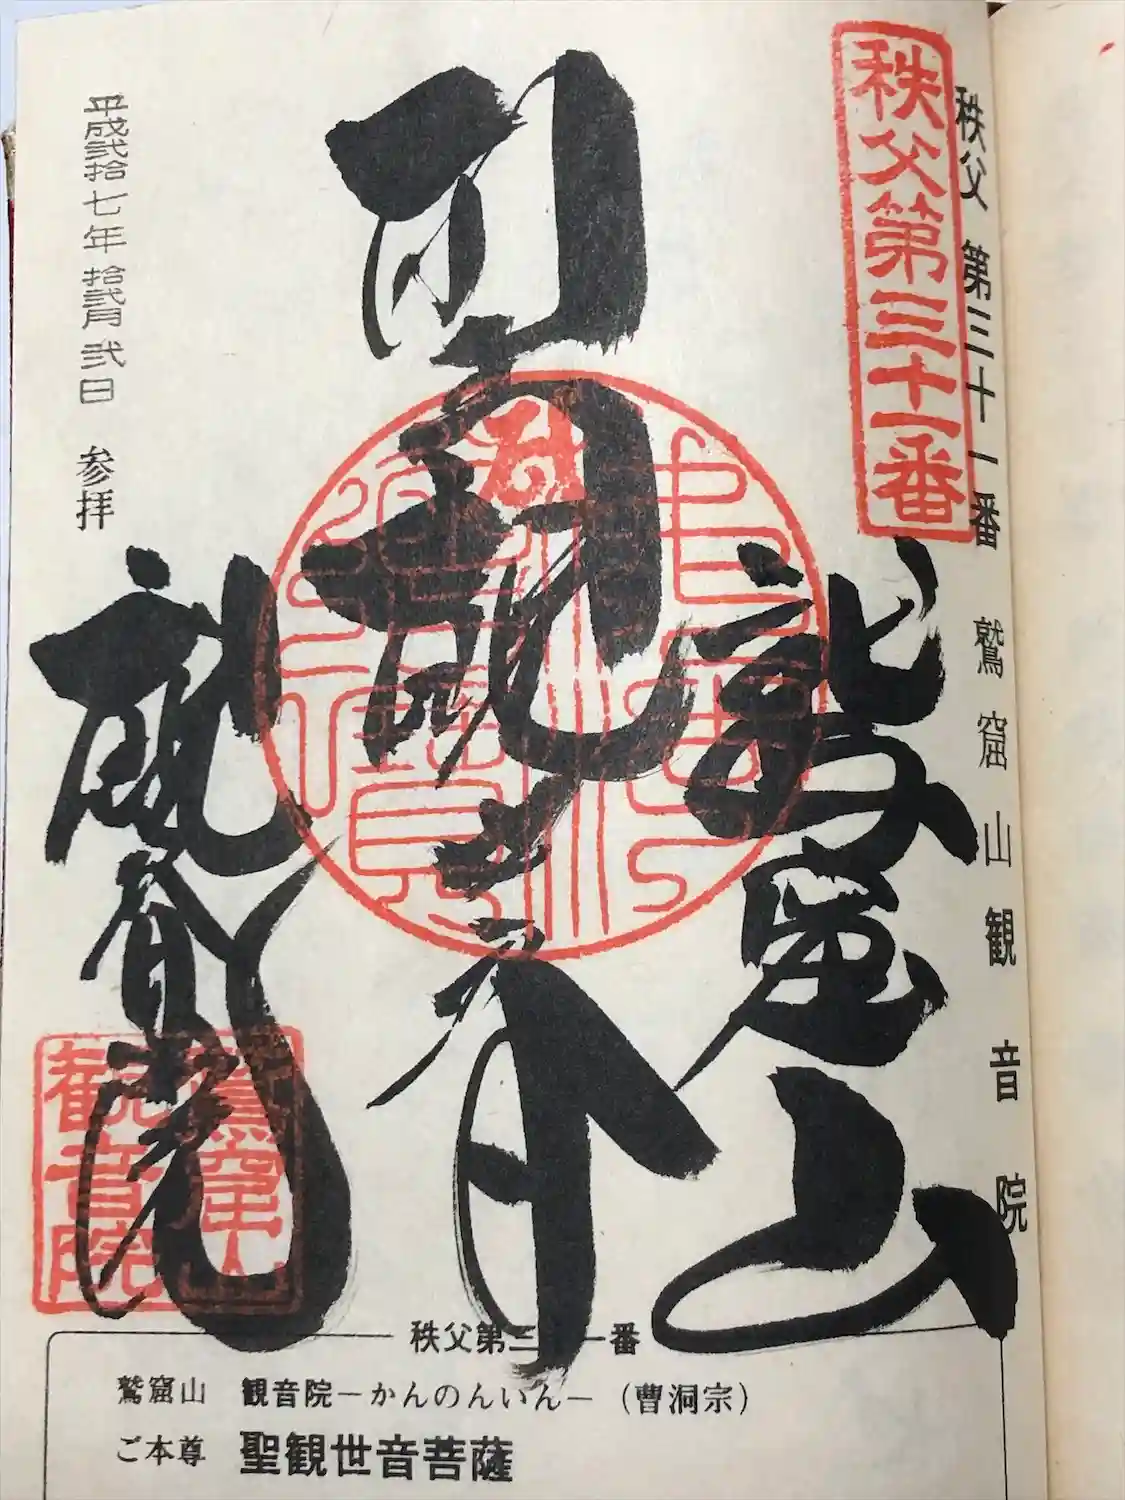 秩父 第三十一番 鷲窟山観音院
秩父第三十一番
鷲窟山
聖観世音
観音院
平成弐拾七年拾弐月弐日 参拝
鷲窟山
観音院
秩父第三十一番
鷲窟山 観音院－かんのんいん－(曹洞宗)
ご本尊 聖観世音菩薩